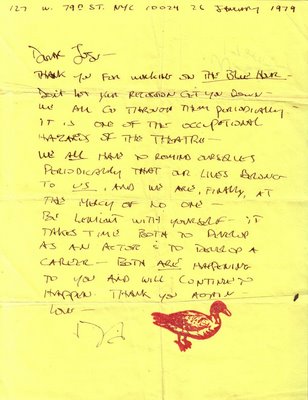 127 W. 79th ST. NYC 10024 26 January 1979
Dear
THANK YOU FOR WORKING ON THE BLUE HOUR -
DON'T LET YOUR GET YOU DOWN
WE ALL GO THROUGH THEM PERIODICALLY
IT IS ONE OF THE OCCUPATIONAL
HAZARDS OF THE THEATRE -
WE ALL HAVE TO REMIND OURSELVES
PERIODICALLY THAT OUR LIVES BELONG
TO US, AND WE ARE, FINALLY, AT
THE MERCY OF NO ONE -
BE LENIENT WITH YOURSELF - IT
TAKES TIME BOTH TO DEVELOP
AS AN ACTOR & TO DEVELOP A
CAREER - BOTH ARE HAPPENING
TO YOU AND WILL CONTINUE TO
HAPPEN. THANK YOU AGAIN -
LOVE -